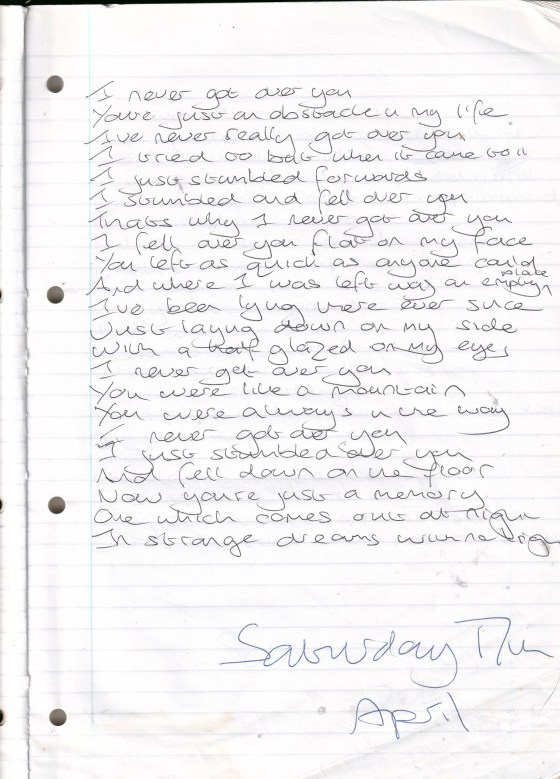 I never got over you
Youre just an obstacle in my life
I've never really got over you
I tried to but when it came to it
I just stumbled forwards
I stumbled and fell over you
Thats why I never got over you
I fell over you flat on my face
You left as quick as anyone could
And where I was left was an empty place
I've been lying there ever since
Just laying down on my side
With a glazed on my eyes
I never get over you
You were like a mountain
You were always in the way
I never got over you
I just stumbled over you
And fell down on the floor
Now youre just a memory
One which comes out at night
In strange dreams with no
Saturday 17th
April